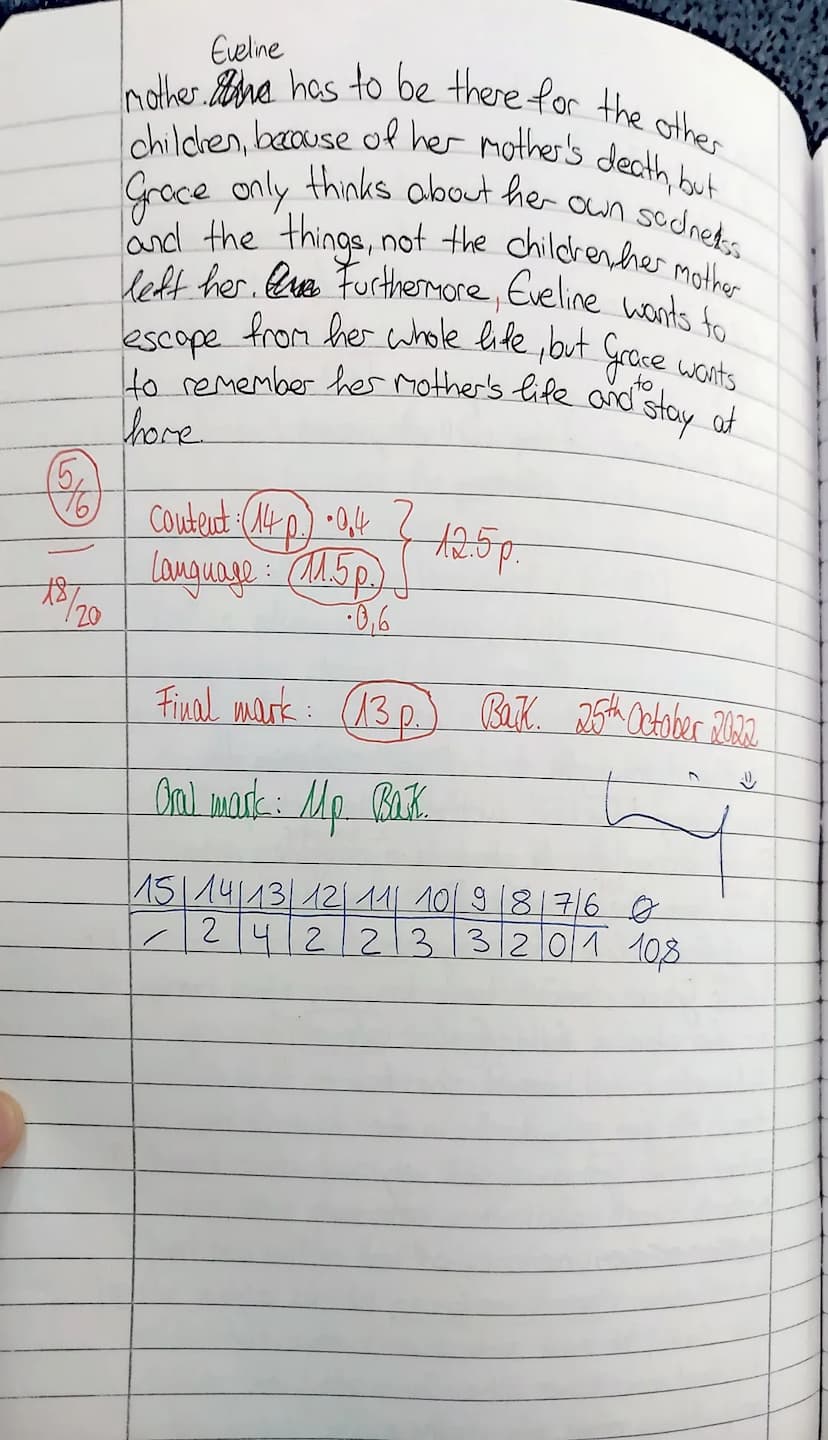 Eveline
mother. has to be there for the other
children, because of her mother's death, but
Grace only thinks about her own sadness
and the things, not the children, her mother
left her. Furthermore, Eveline wants to
escape from her whole life, but Grace wants
to remember her mother's life and to stay at
home.
5/6
Content: 14 p. · 0,4
12.5 p.
Language: 11.5 p.
· 0,6
18/20
Final mark: 13 p. BaK. 25th October 2022
Oral mark: 11p. BaK.
15 | 14 | 13 | 12 | 11 | 10 | 9 | 8 | 7 | 6 Ø
– | 2 | 4 | 2 | 2 | 3 | 3 | 2 | 0 | 1 10,8